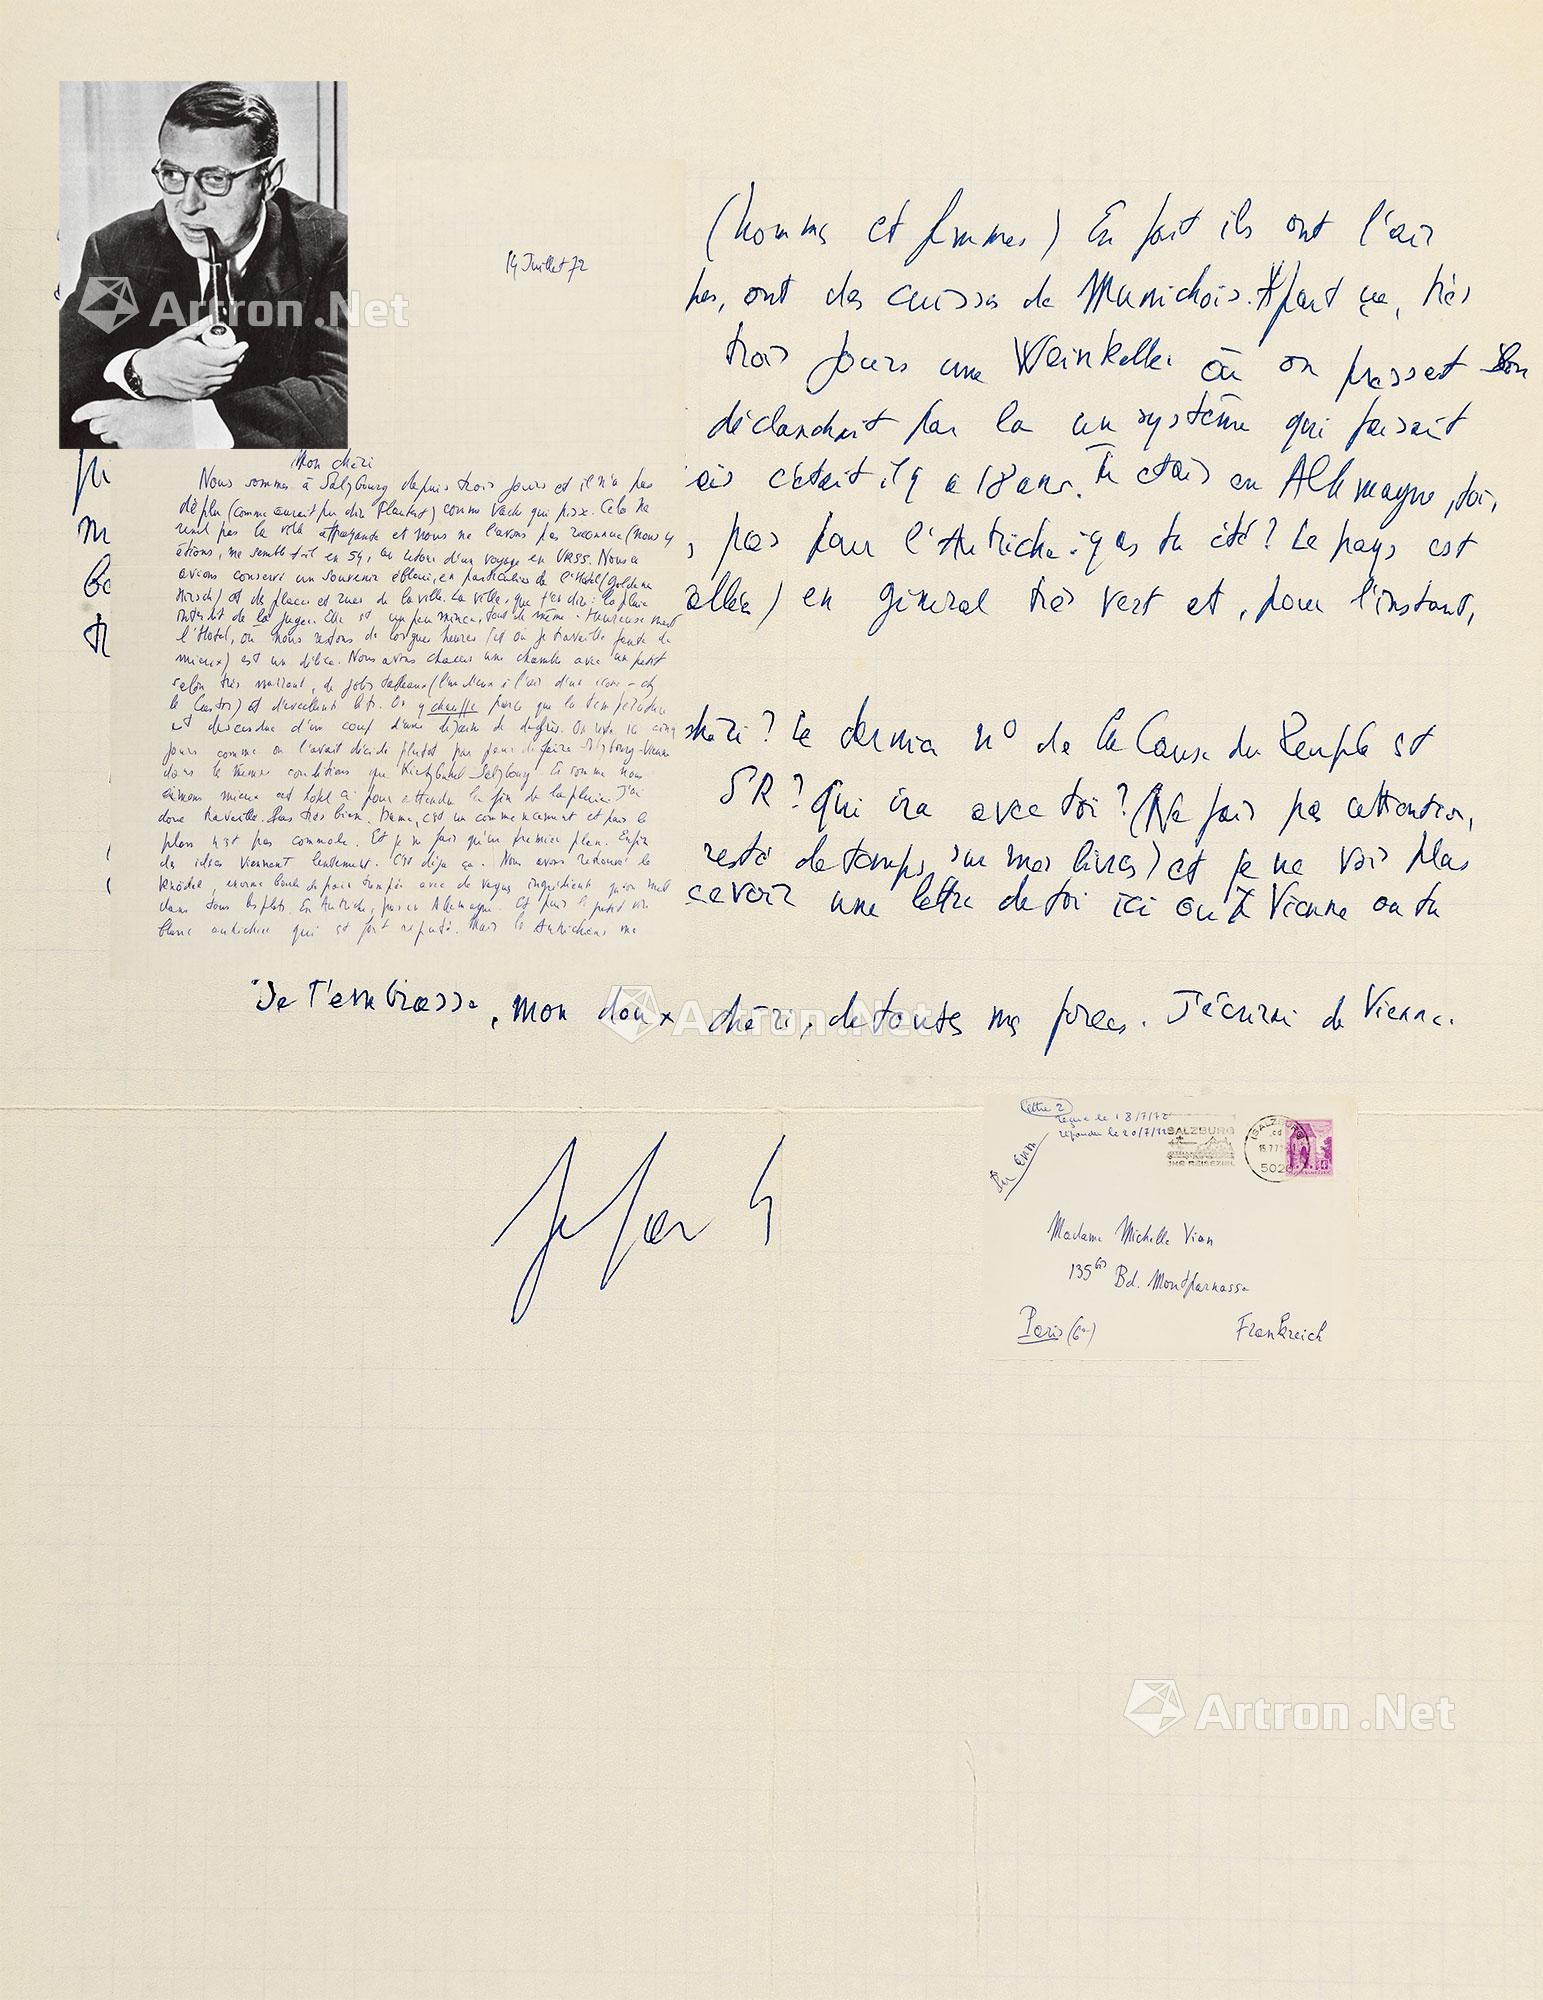 14 Juillet 72
Mon chéri
Nous sommes à Salzbourg depuis trois jours et il n'a pas
déplu (comme aurait pu dire Flaubert) comme vache qui pisse. Cela ne
rend pas la ville attrayante et nous ne l'avons pas reconnue (nous y
étions, me semble-t-il en 54, au retour d'un voyage en URSS. Nous en
avions conservé un souvenir ébloui, en particulier de l'Hôtel (Goldener
Hirsch) et des places et rues de la ville. La ville, que t'en dire : la pluie
interdit de la juger. Elle est un peu mince, tout de même. Heureusement
l'Hôtel, où nous restons de longues heures (et où je travaille faute de
mieux) est un délice. Nous avons chacun une chambre avec un petit
salon très marrant, de jolis tableaux (l'un deux a l'air d'une icone - chez
le Castor) et d'excellents lits. On y chauffe parce que la température
est descendue d'un coup d'une dizaine de degrés. On reste ici cinq
jours comme on l'avait décidé plutôt que pour faire Salzbourg-Vienne
dans les mêmes conditions que Kitzbühel-Salzbourg. Et comme nous
aimons mieux cet hôtel-ci pour attendre la fin de la pluie. J'ai
donc travaillé. Pas très bien. Dame, c'est un commencement et puis le
plan n'est pas commode. Et je ne fais qu'un premier plan. Enfin
des idées viennent lentement. C'est déjà ça. Nous avons retrouvé le
Knödel, énorme boule de pain trempée avec de vagues ingrédients qu'on met
dans tous les plats. En Autriche, pas en Allemagne. Et puis le petit vin
blanc autrichien qui est fort réputé. Mais les Autrichiens me
(hommes et femmes) En fait ils ont l'air
pas, ont des cuisses de Munichois. A part ça, très
trois jours une Weinkeller où on pressait
déclanchait par là un système qui faisait
ais c'était il y a 18 ans. Tu étais en Allemagne, toi,
, pas pour l'Autriche : y as tu été ? Le pays est
allées) en général très vert et, pour l'instant,
chéri ? Le dernier n° de la Cause du Peuple est
SR ? Qui ira avec toi ? (Ne fais pas attention,
resté de temps sur mes livres) et je ne vois plus
cevoir une lettre de toi ici ou à Vienne ou tu
Je t'embrasse, mon doux chéri, de toutes mes forces. J'écrirai de Vienne.
Lettre 2
reçue le 18/7/72
répondu le 20/7/72
SALZBURG
IHR REISEZIEL
SALZBURG
5020
Par avion
Madame Michelle Vian
135 bis Bd. Montparnasse
Paris (6e) Frankreich
Artron.Net
Artron.Net
Artron.Net